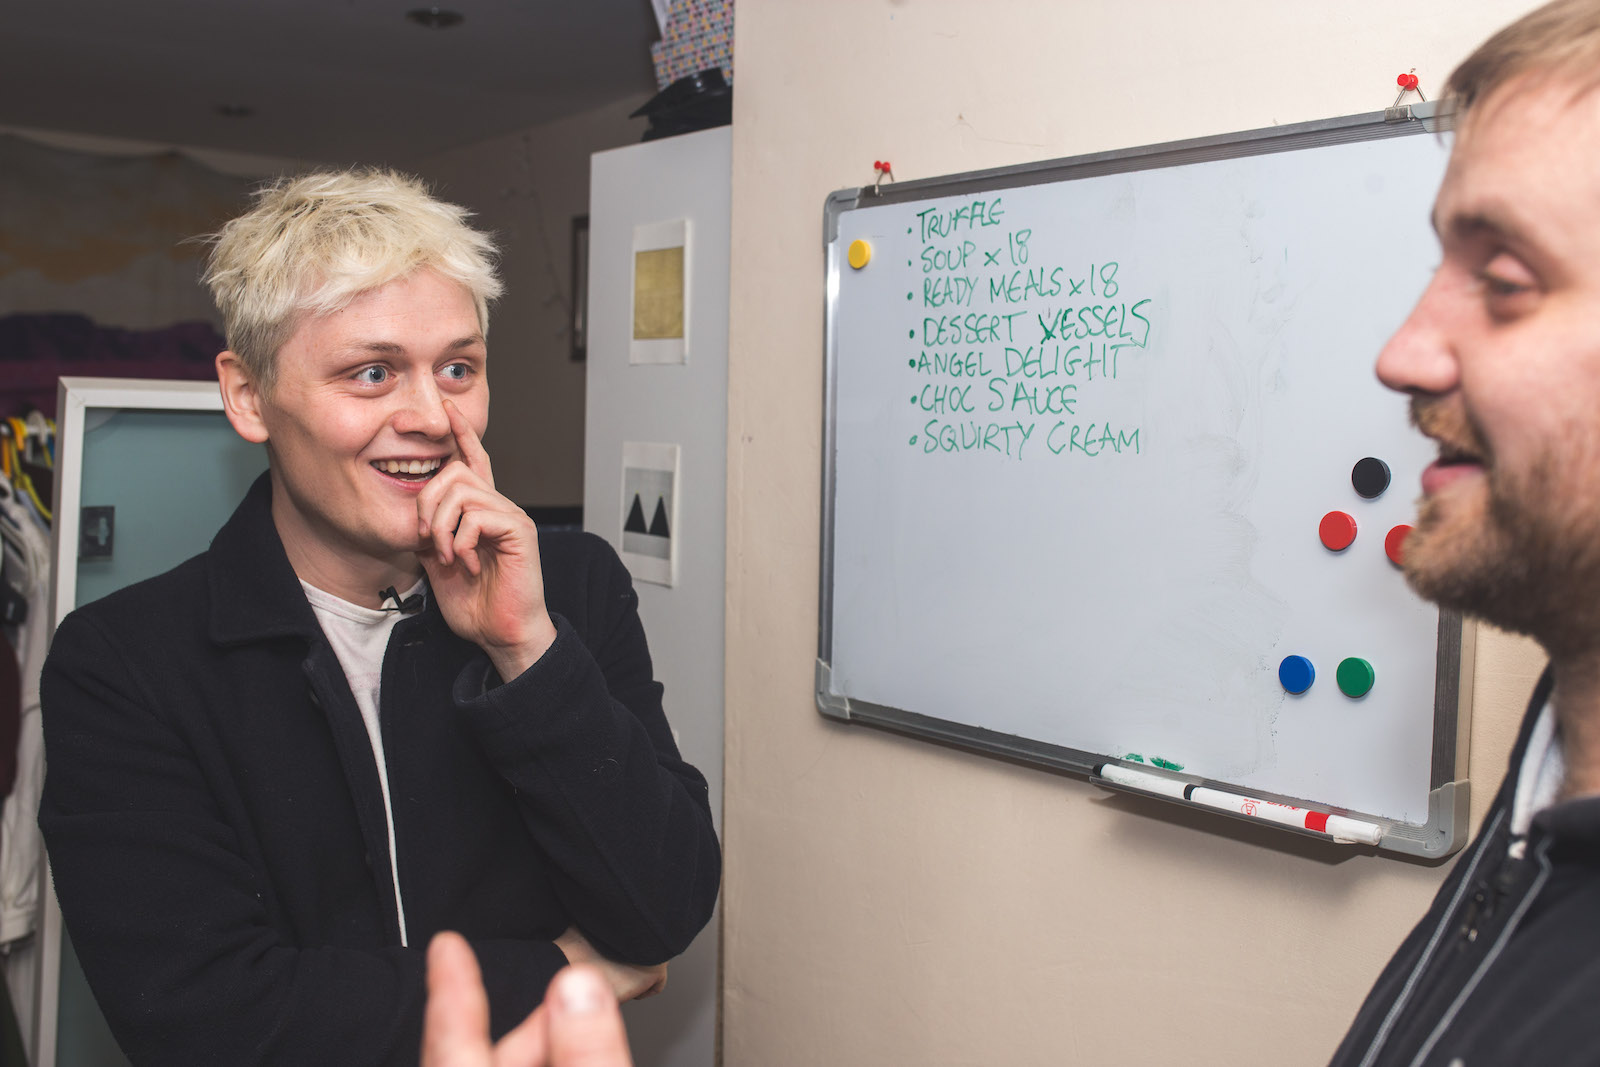 • TRUFFLE
• SOUP x 18
• READY MEALS x 18
• DESSERT VESSELS
• ANGEL DELIGHT
• CHOC SAUCE
• SQUIRTY CREAM